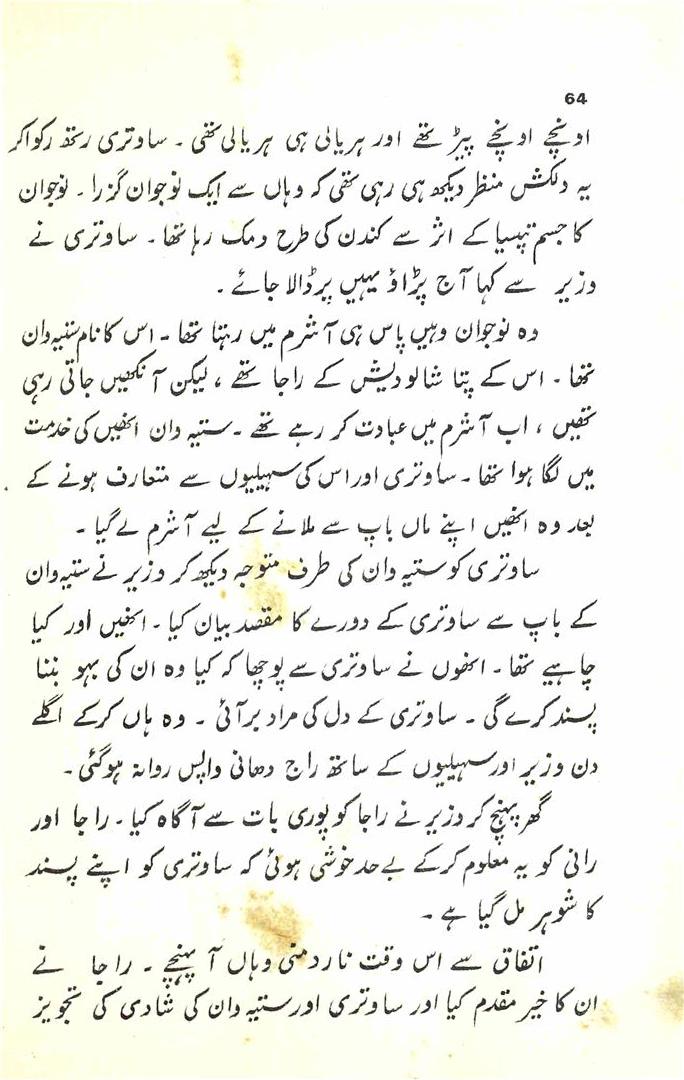 64
اونچے اونچے پیڑ تھے اور ہریالی ہی ہریالی تھی ۔ ساوتری رتھ رکوا کر
یہ دلکش منظر دیکھ ہی رہی تھی کہ وہاں سے ایک نوجوان گزرا ۔ نوجوان
کا جسم تپسیا کے اثر سے کندن کی طرح دمک رہا تھا ۔ ساوتری نے
وزیر سے کہا آج پڑاؤ یہیں پر ڈالا جائے ۔
وہ نوجوان وہیں پاس ہی آشرم میں رہتا تھا ۔ اس کا نام ستیہ وان
تھا ۔ اس کے پتا شالودیش کے راجا تھے ، لیکن آنکھیں جاتی رہی
تھیں ، اب آشرم میں عبادت کر رہے تھے ۔ ستیہ وان انھیں کی خدمت
میں لگا ہوا تھا ۔ ساوتری اور اس کی سہیلیوں سے متعارف ہونے کے
بعد وہ انھیں اپنے ماں باپ سے ملانے کے لیے آشرم لے گیا ۔
ساوتری کو ستیہ وان کی طرف متوجہ دیکھ کر وزیر نے ستیہ وان
کے باپ سے ساوتری کے دورے کا مقصد بیان کیا ۔ انھیں اور کیا
چاہیے تھا ۔ انھوں نے ساوتری سے پوچھا کہ کیا وہ ان کی بہو بننا
پسند کرے گی ۔ ساوتری کے دل کی مراد بر آئی ۔ وہ ہاں کرکے اگلے
دن وزیر اور سہیلیوں کے ساتھ راج دھانی واپس روانہ ہوگئی ۔
گھر پہنچ کر وزیر نے راجا کو پوری بات سے آگاہ کیا ۔ راجا اور
رانی کو یہ معلوم کرکے بے حد خوشی ہوئی کہ ساوتری کو اپنے پسند
کا شوہر مل گیا ہے ۔
اتفاق سے اس وقت نارد منی وہاں آ پہنچے ۔ راجا نے
ان کا خیر مقدم کیا اور ساوتری اور ستیہ وان کی شادی کی تجویز